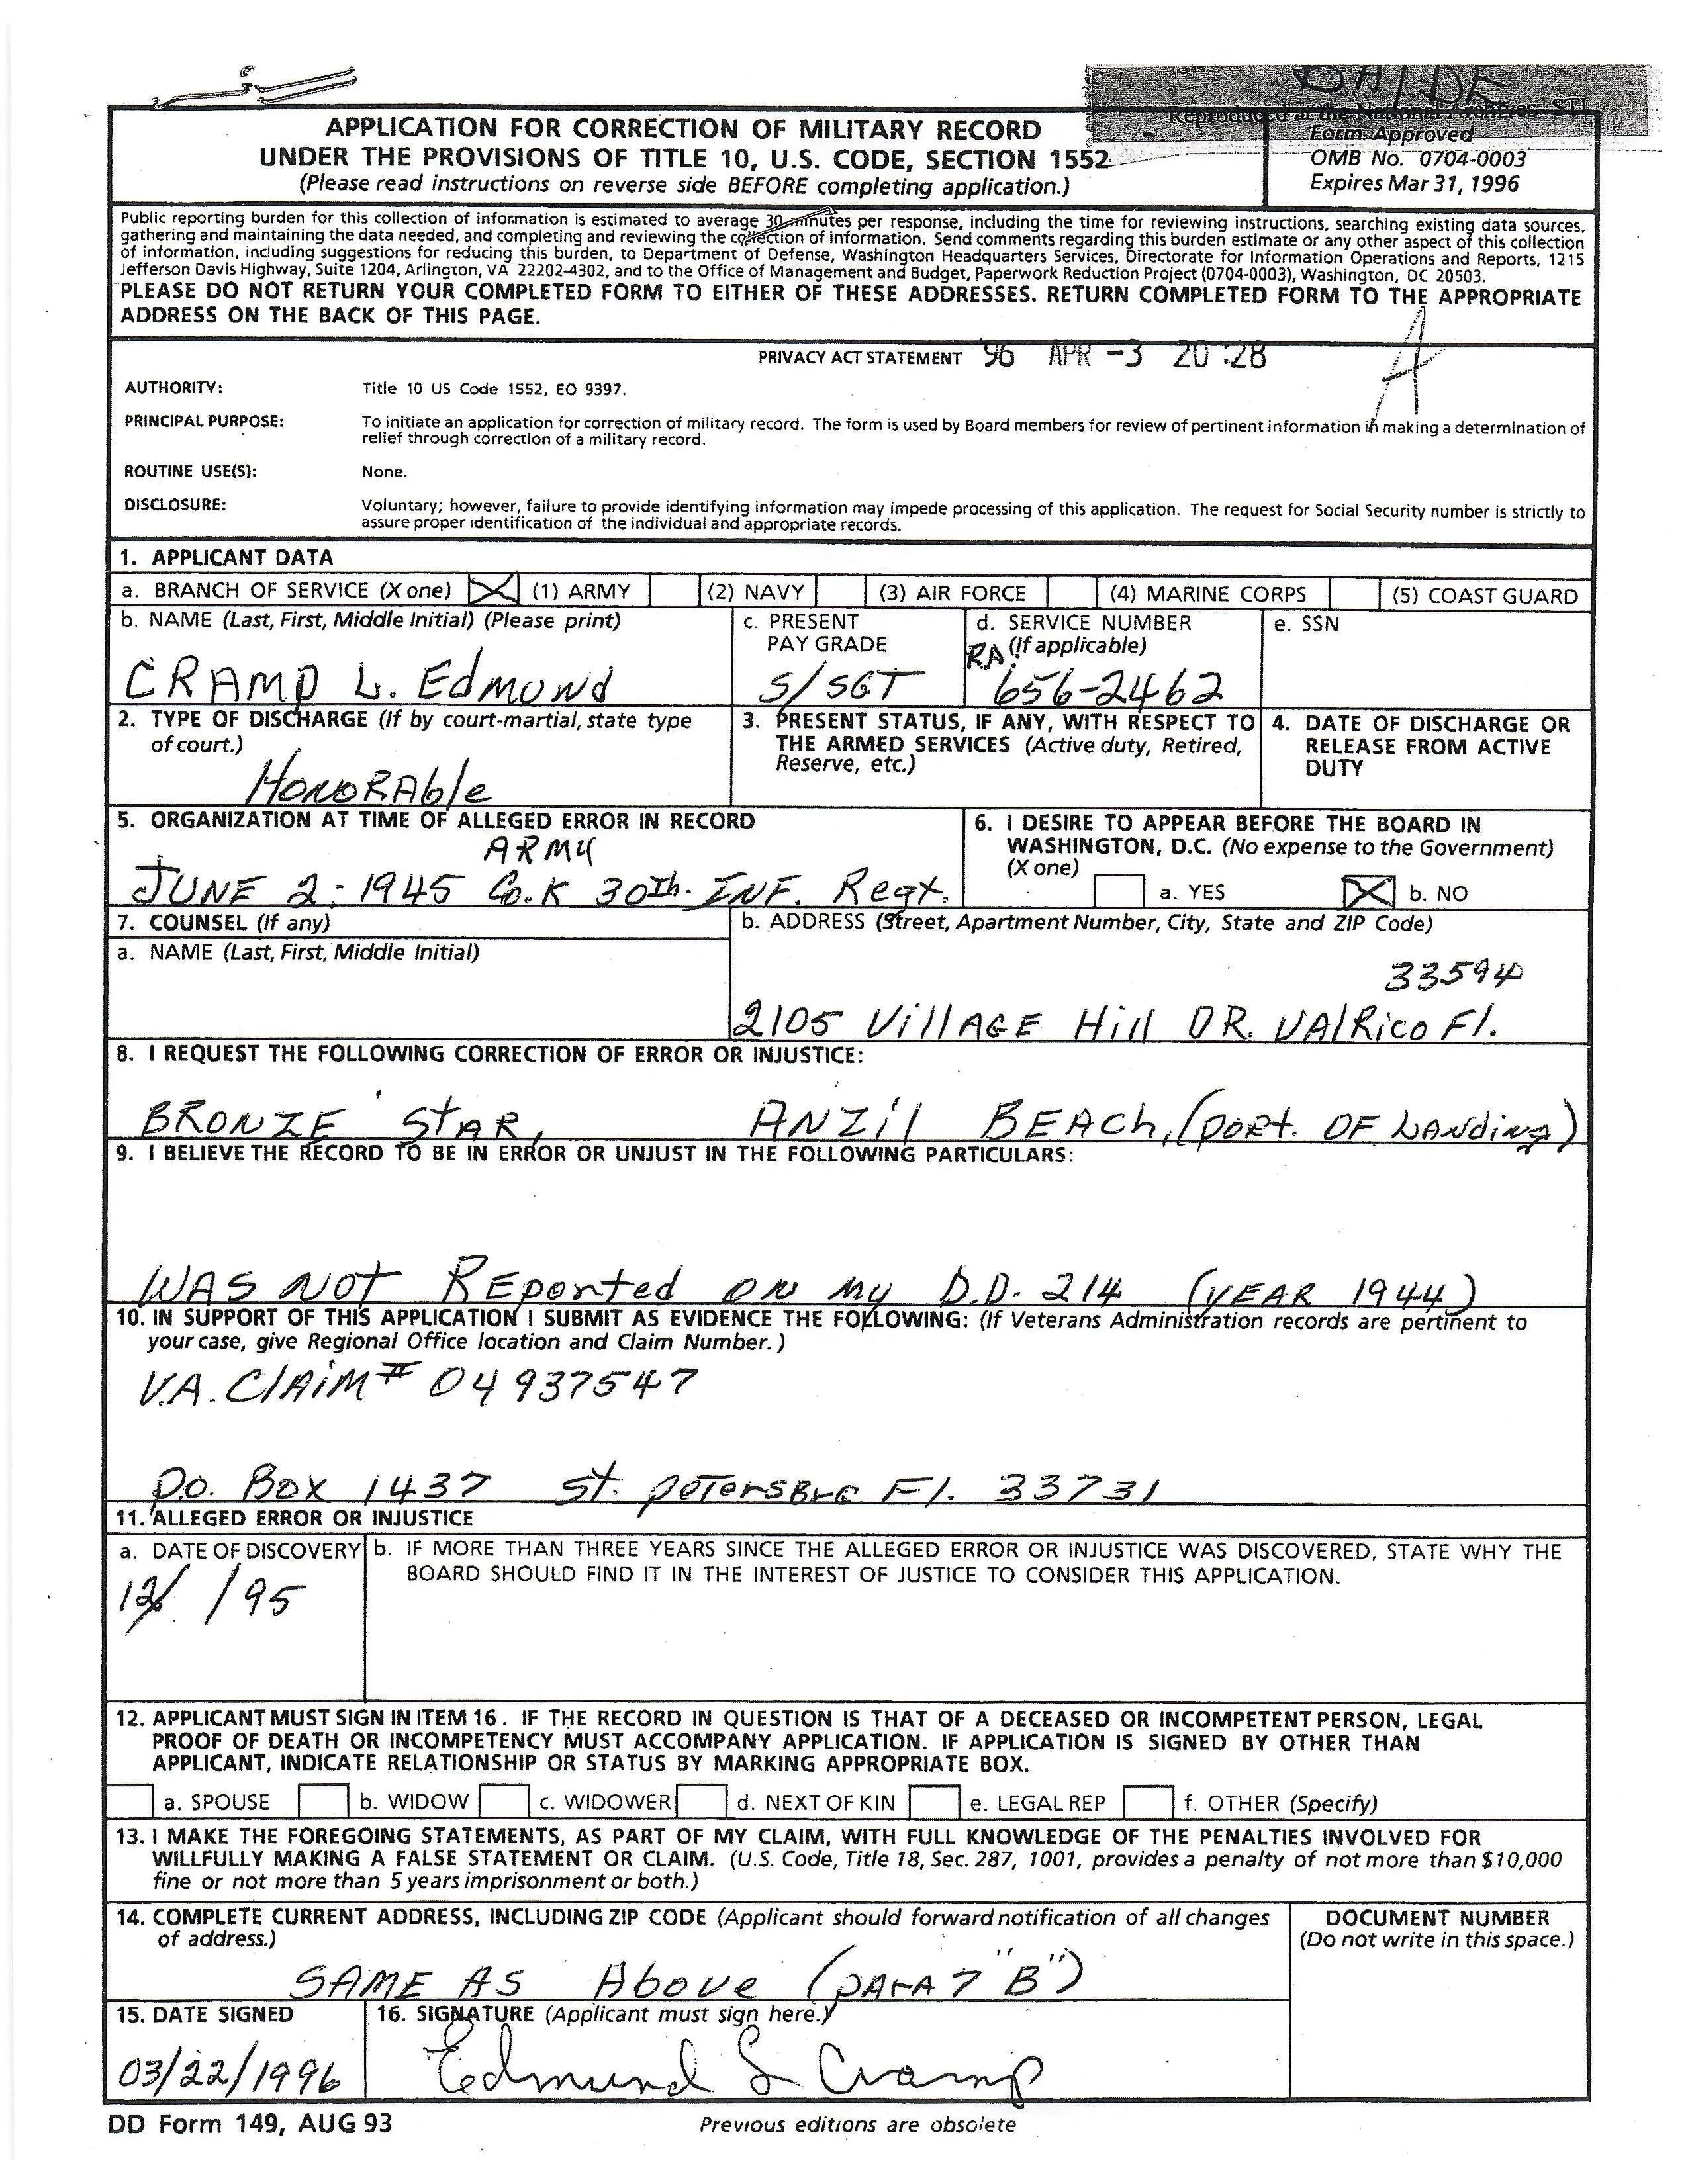 DA/DE
Reproduced at the National Archives - STL
APPLICATION FOR CORRECTION OF MILITARY RECORD
UNDER THE PROVISIONS OF TITLE 10, U.S. CODE, SECTION 1552
(Please read instructions on reverse side BEFORE completing application.)
Form Approved
OMB No. 0704-0003
Expires Mar 31, 1996
Public reporting burden for this collection of information is estimated to average 30 minutes per response, including the time for reviewing instructions, searching existing data sources,
gathering and maintaining the data needed, and completing and reviewing the collection of information. Send comments regarding this burden estimate or any other aspect of this collection
of information, including suggestions for reducing this burden, to Department of Defense, Washington Headquarters Services, Directorate for Information Operations and Reports, 1215
Jefferson Davis Highway, Suite 1204, Arlington, VA 22202-4302, and to the Office of Management and Budget, Paperwork Reduction Project (0704-0003), Washington, DC 20503.
PLEASE DO NOT RETURN YOUR COMPLETED FORM TO EITHER OF THESE ADDRESSES. RETURN COMPLETED FORM TO THE APPROPRIATE
ADDRESS ON THE BACK OF THIS PAGE.
PRIVACY ACT STATEMENT '96 APR -3 20:28
A
AUTHORITY: Title 10 US Code 1552, EO 9397.
PRINCIPAL PURPOSE: To initiate an application for correction of military record. The form is used by Board members for review of pertinent information in making a determination of
relief through correction of a military record.
ROUTINE USE(S): None.
DISCLOSURE: Voluntary; however, failure to provide identifying information may impede processing of this application. The request for Social Security number is strictly to
assure proper identification of the individual and appropriate records.
1. APPLICANT DATA
a. BRANCH OF SERVICE (X one) X (1) ARMY (2) NAVY (3) AIR FORCE (4) MARINE CORPS (5) COAST GUARD
b. NAME (Last, First, Middle Initial) (Please print)
CRAMP L. EdMUNd
c. PRESENT
PAY GRADE
S/SGT
d. SERVICE NUMBER
(If applicable)
RA
656-2462
e. SSN
2. TYPE OF DISCHARGE (If by court-martial, state type
of court.)
HONORAble
3. PRESENT STATUS, IF ANY, WITH RESPECT TO
THE ARMED SERVICES (Active duty, Retired,
Reserve, etc.)
4. DATE OF DISCHARGE OR
RELEASE FROM ACTIVE
DUTY
5. ORGANIZATION AT TIME OF ALLEGED ERROR IN RECORD
ARMY
JUNE 2-1945 Co.K 30Th. INF. Regt.
6. I DESIRE TO APPEAR BEFORE THE BOARD IN
WASHINGTON, D.C. (No expense to the Government)
(X one)
a. YES X b. NO
7. COUNSEL (If any)
a. NAME (Last, First, Middle Initial)
b. ADDRESS (Street, Apartment Number, City, State and ZIP Code)
33594
2105 VillAGE Hill DR. VAlRico Fl.
8. I REQUEST THE FOLLOWING CORRECTION OF ERROR OR INJUSTICE:
BRONZE StAR, ANZil BEACh, (port. OF LANding)
9. I BELIEVE THE RECORD TO BE IN ERROR OR UNJUST IN THE FOLLOWING PARTICULARS:
WAS NOt REported ON My D.D. 214 (yEAR 1944)
10. IN SUPPORT OF THIS APPLICATION I SUBMIT AS EVIDENCE THE FOLLOWING: (If Veterans Administration records are pertinent to
your case, give Regional Office location and Claim Number.)
V.A. ClAiM # 04937547
P.O. Box 1437 St. peTersBrg Fl. 33731
11. ALLEGED ERROR OR INJUSTICE
a. DATE OF DISCOVERY
12/ /95
b. IF MORE THAN THREE YEARS SINCE THE ALLEGED ERROR OR INJUSTICE WAS DISCOVERED, STATE WHY THE
BOARD SHOULD FIND IT IN THE INTEREST OF JUSTICE TO CONSIDER THIS APPLICATION.
12. APPLICANT MUST SIGN IN ITEM 16. IF THE RECORD IN QUESTION IS THAT OF A DECEASED OR INCOMPETENT PERSON, LEGAL
PROOF OF DEATH OR INCOMPETENCY MUST ACCOMPANY APPLICATION. IF APPLICATION IS SIGNED BY OTHER THAN
APPLICANT, INDICATE RELATIONSHIP OR STATUS BY MARKING APPROPRIATE BOX.
a. SPOUSE b. WIDOW c. WIDOWER d. NEXT OF KIN e. LEGAL REP f. OTHER (Specify)
13. I MAKE THE FOREGOING STATEMENTS, AS PART OF MY CLAIM, WITH FULL KNOWLEDGE OF THE PENALTIES INVOLVED FOR
WILLFULLY MAKING A FALSE STATEMENT OR CLAIM. (U.S. Code, Title 18, Sec. 287, 1001, provides a penalty of not more than $10,000
fine or not more than 5 years imprisonment or both.)
14. COMPLETE CURRENT ADDRESS, INCLUDING ZIP CODE (Applicant should forward notification of all changes
of address.)
SAME AS Above (pArA 7 "B")
DOCUMENT NUMBER
(Do not write in this space.)
15. DATE SIGNED
03/22/1996
16. SIGNATURE (Applicant must sign here.)
Edmund L Cramp
DD Form 149, AUG 93
Previous editions are obsolete